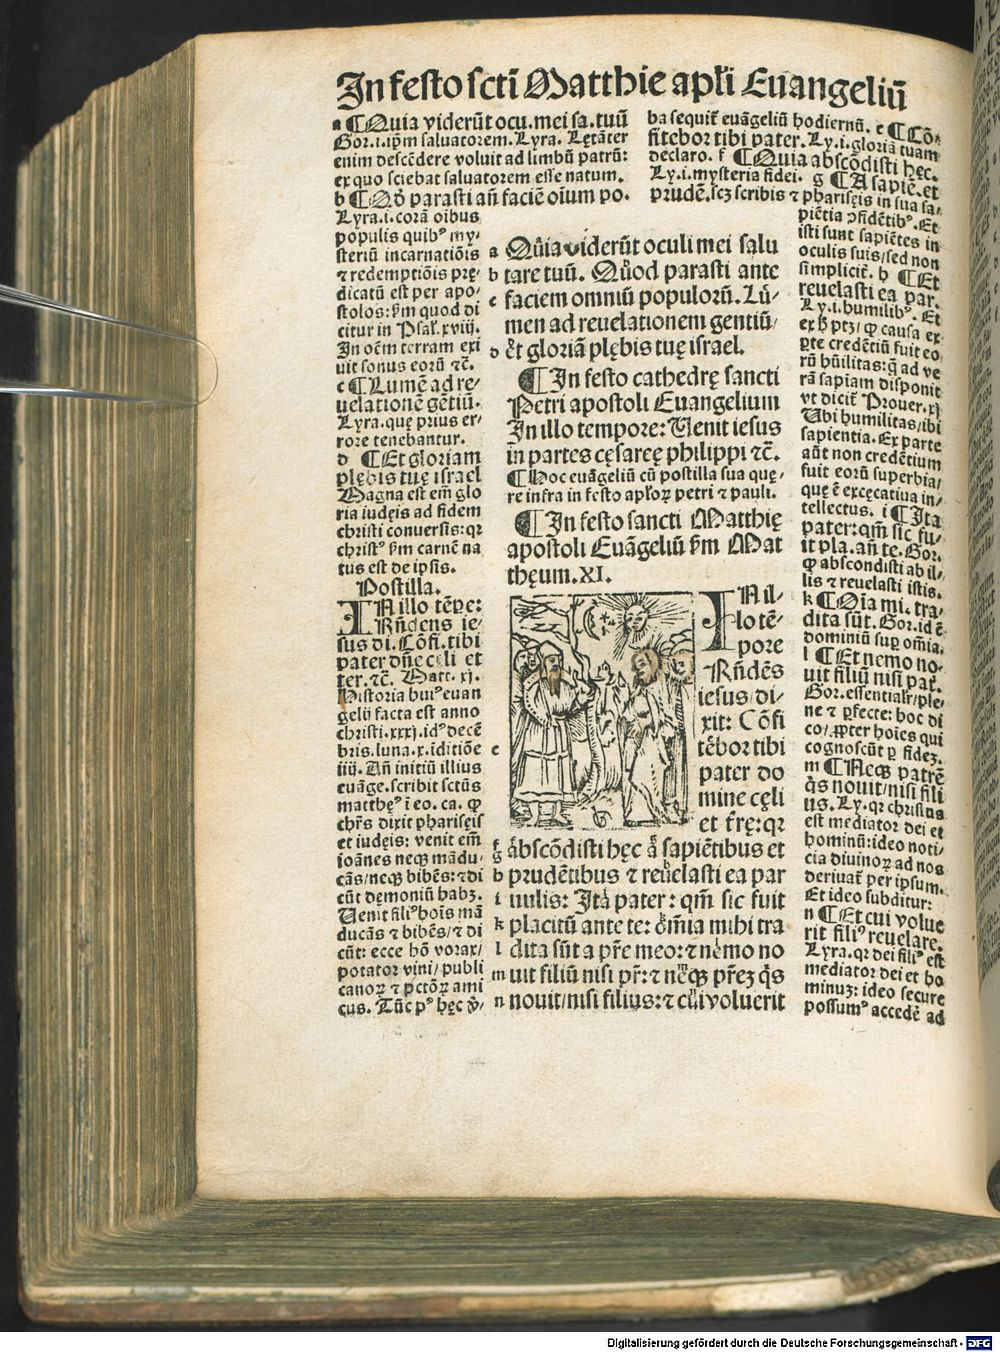 In festo scti Matthie apłi Euangeliū
a ¶Quia viderūt ocu. mei sa. tuū
Gor. i. ipm saluatorem. Lyra. Lętāter
enim descēdere voluit ad limbū patrū:
ex quo sciebat saluatorem esse natum.
b ¶Qđ parasti añ faciē oīum po.
Lyra. i. corā oibus
populis quibꝰ my⸗
steriū incarnatiōis
⁊ redemptiōis prę⸗
dicatū est per apo⸗
stolos: ẜm quod di
citur in Psał. xviij.
In oēm terram exi
uit sonus eorū ⁊c̄.
c ¶Lumē ad re⸗
uelationē gētiū.
Lyra. quę prius er⸗
rore tenebantur.
d ¶Et gloriam
plębis tuę israel
Magna est em̄ glo
ria iudęis ad fidem
christi conuersis: qr
christꝰ ẜm carnē na
tus est de ipsis.
Postilla.
IN illo tēpe:
Rñdens ie⸗
sus di. Cōfi. tibi
pater dñe cęli et
ter. ⁊c̄. Matt. xj.
Historia huiꝰ euan
gelij facta est anno
christi. xxxj. idꝰ decē
bris. luna. x. iditiōe
iiij. Añ initiū illius
euāge. scribit sctūs
matthęꝰ i eo. ca. ꝙ
chr̄s dixit phariseis
et iudęis: venit em̄
ioānes neqꝫ mādu⸗
cās/neqꝫ bibēs: ⁊ di
cūt dęmoniū habꝫ.
Uenit filiꝰ hoīs mā
ducās ⁊ bibēs/⁊ di
cūt: ecce hō vorax/
potator vini/publi
canoꝝ ⁊ pctōꝝ ami
cus. Tūc pꝰ hęc ꝟ⸗
ba sequit᷑ euāgeliū hodiernū. e ¶Cō⸗
fitebor tibi pater. Ly. i. gloriā tuam
declaro. f ¶Quia abscōdisti hęc.
Ly. i. mysteria fidei. g ¶A sapiē. et
prudē. scꝫ scribis ⁊ phariseis in sua sa⸗
piētia ꝯfidētibꝰ. Et
isti sunt sapiētes in
oculis suis/sed non
simplicit᷑. h ¶Et
reuelasti ea par.
Ly. i. humilibꝰ. Et
ex ħ ptꝫ/ꝙ causa ex
ꝑte credētiū fuit eo
rū hūilitas: q̄ ad ve
rā sapiam disponit
vt dicit᷑ Prouer. xj
Ubi humilitas/ibi
sapientia. Ex parte
aūt non credētium
fuit eorū superbia/
que ē excęcatiua in⸗
tellectus. i ¶Ita
pater: qm̄ sic fu⸗
it pla. añ te. Gor.
ꝙ abscondisti ab il⸗
lis ⁊ reuelasti istis.
k ¶Oīa mi. tra⸗
dita sūt. Gor. id ē
dominiū suꝑ om̄ia.
l ¶Et nemo no⸗
uit filiū nisi pat᷑.
Gor. essentialr̄/ple⸗
ne ⁊ ꝑfecte: hoc di
co/ꝓpter hoīes qui
cognoscūt ꝑ fideꝫ.
m ¶Neqꝫ patrē
q̄s nouit/nisi fili
us. Ly. qr christus
est mediator dei et
hominū: ideo noti⸗
cia diuinoꝝ ad nos
deriuat᷑ per ipsum.
Et ideo subditur:
n ¶Et cui volue
rit filiꝰ reuelare.
Lyra. qr dei filiꝰ est
mediator dei et ho
minuꝫ: ideo secure
possumꝰ accedē ad
a Quia viderūt oculi mei salu
b tare tuū. Quod parasti ante
c faciem omniū populorū. Lū⸗
men ad reuelationem gentiū/
d et gloriā plębis tuę israel.
¶In festo cathedrę sancti
Petri apostoli Euangelium
In illo tempore: Uenit iesus
in partes cęsareę philippi ⁊c̄.
¶Hoc euāgeliū cū postilla sua quę⸗
re infra in festo apłoꝝ petri ⁊ pauli.
¶In festo sancti Matthię
apostoli Euāgeliū ẜm Mat
thęum. XI.
IN il⸗
lo tē⸗
pore
Rñdēs
iesus/di⸗
xit: Cōfi
e tēbor tibi
pater do
mine cęli
et tr̄ę: qr
f g abscōdisti hęc a sapiētibus et
h prudētibus ⁊ reuelasti ea par
i uulis: Ita pater: qm̄ sic fuit
k placitū ante te: om̄ia mihi tra
l dita sūt a pr̄e meo: ⁊ nemo no
m uit filiū nisi pr̄: ⁊ neqꝫ pr̄eꝫ q̄s
n nouit/nisi filius: ⁊ cui voluerit
Digitalisierung gefördert durch die Deutsche Forschungsgemeinschaft - DFG